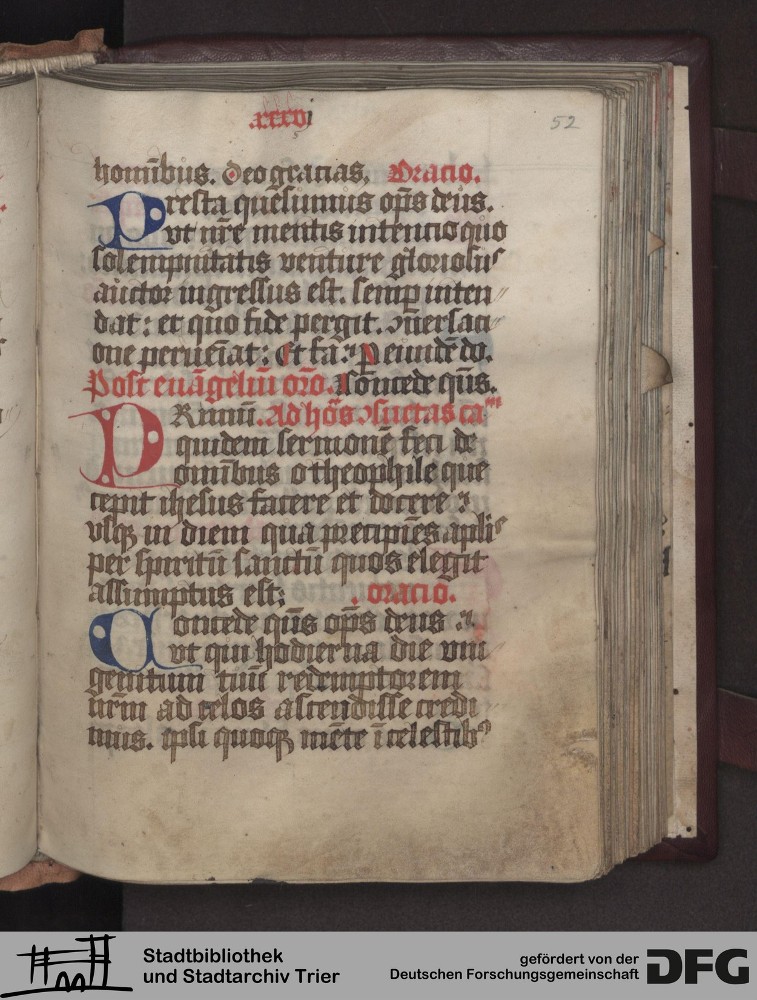 xxxvi
52
homībus. Deo gracias. Oracio.
Presta quesumus op̄s deus.
vt nr̄e mentis intencio quo
solempnitatis venture gloriosus
auctor ingressus est. semp inten
dat: et quo fide pergit. ↄuersaci
one perueīat: Et fa. P eundē do.
Post euāgeliū oro. Concede qūs.
PRimū. Ad hōs ↄsuetas ca
quidem sermonē feci de
omībus o theophile que
cepit ihesus facere et docere
vsqꝫ in diem qua precipiēs apl̄is
per spiritū sanctū quos elegit
assumptus est: oracio.
Concede qūs op̄s deus
vt qui hodierna die vni
genitum tuū redemptorem
nrm̄ ad celos ascendisse credi
mus. ipsi quoqꝫ mēte ī celestibꝰ
Stadtbibliothek
und Stadtarchiv Trier
gefördert von der
Deutschen Forschungsgemeinschaft
DFG